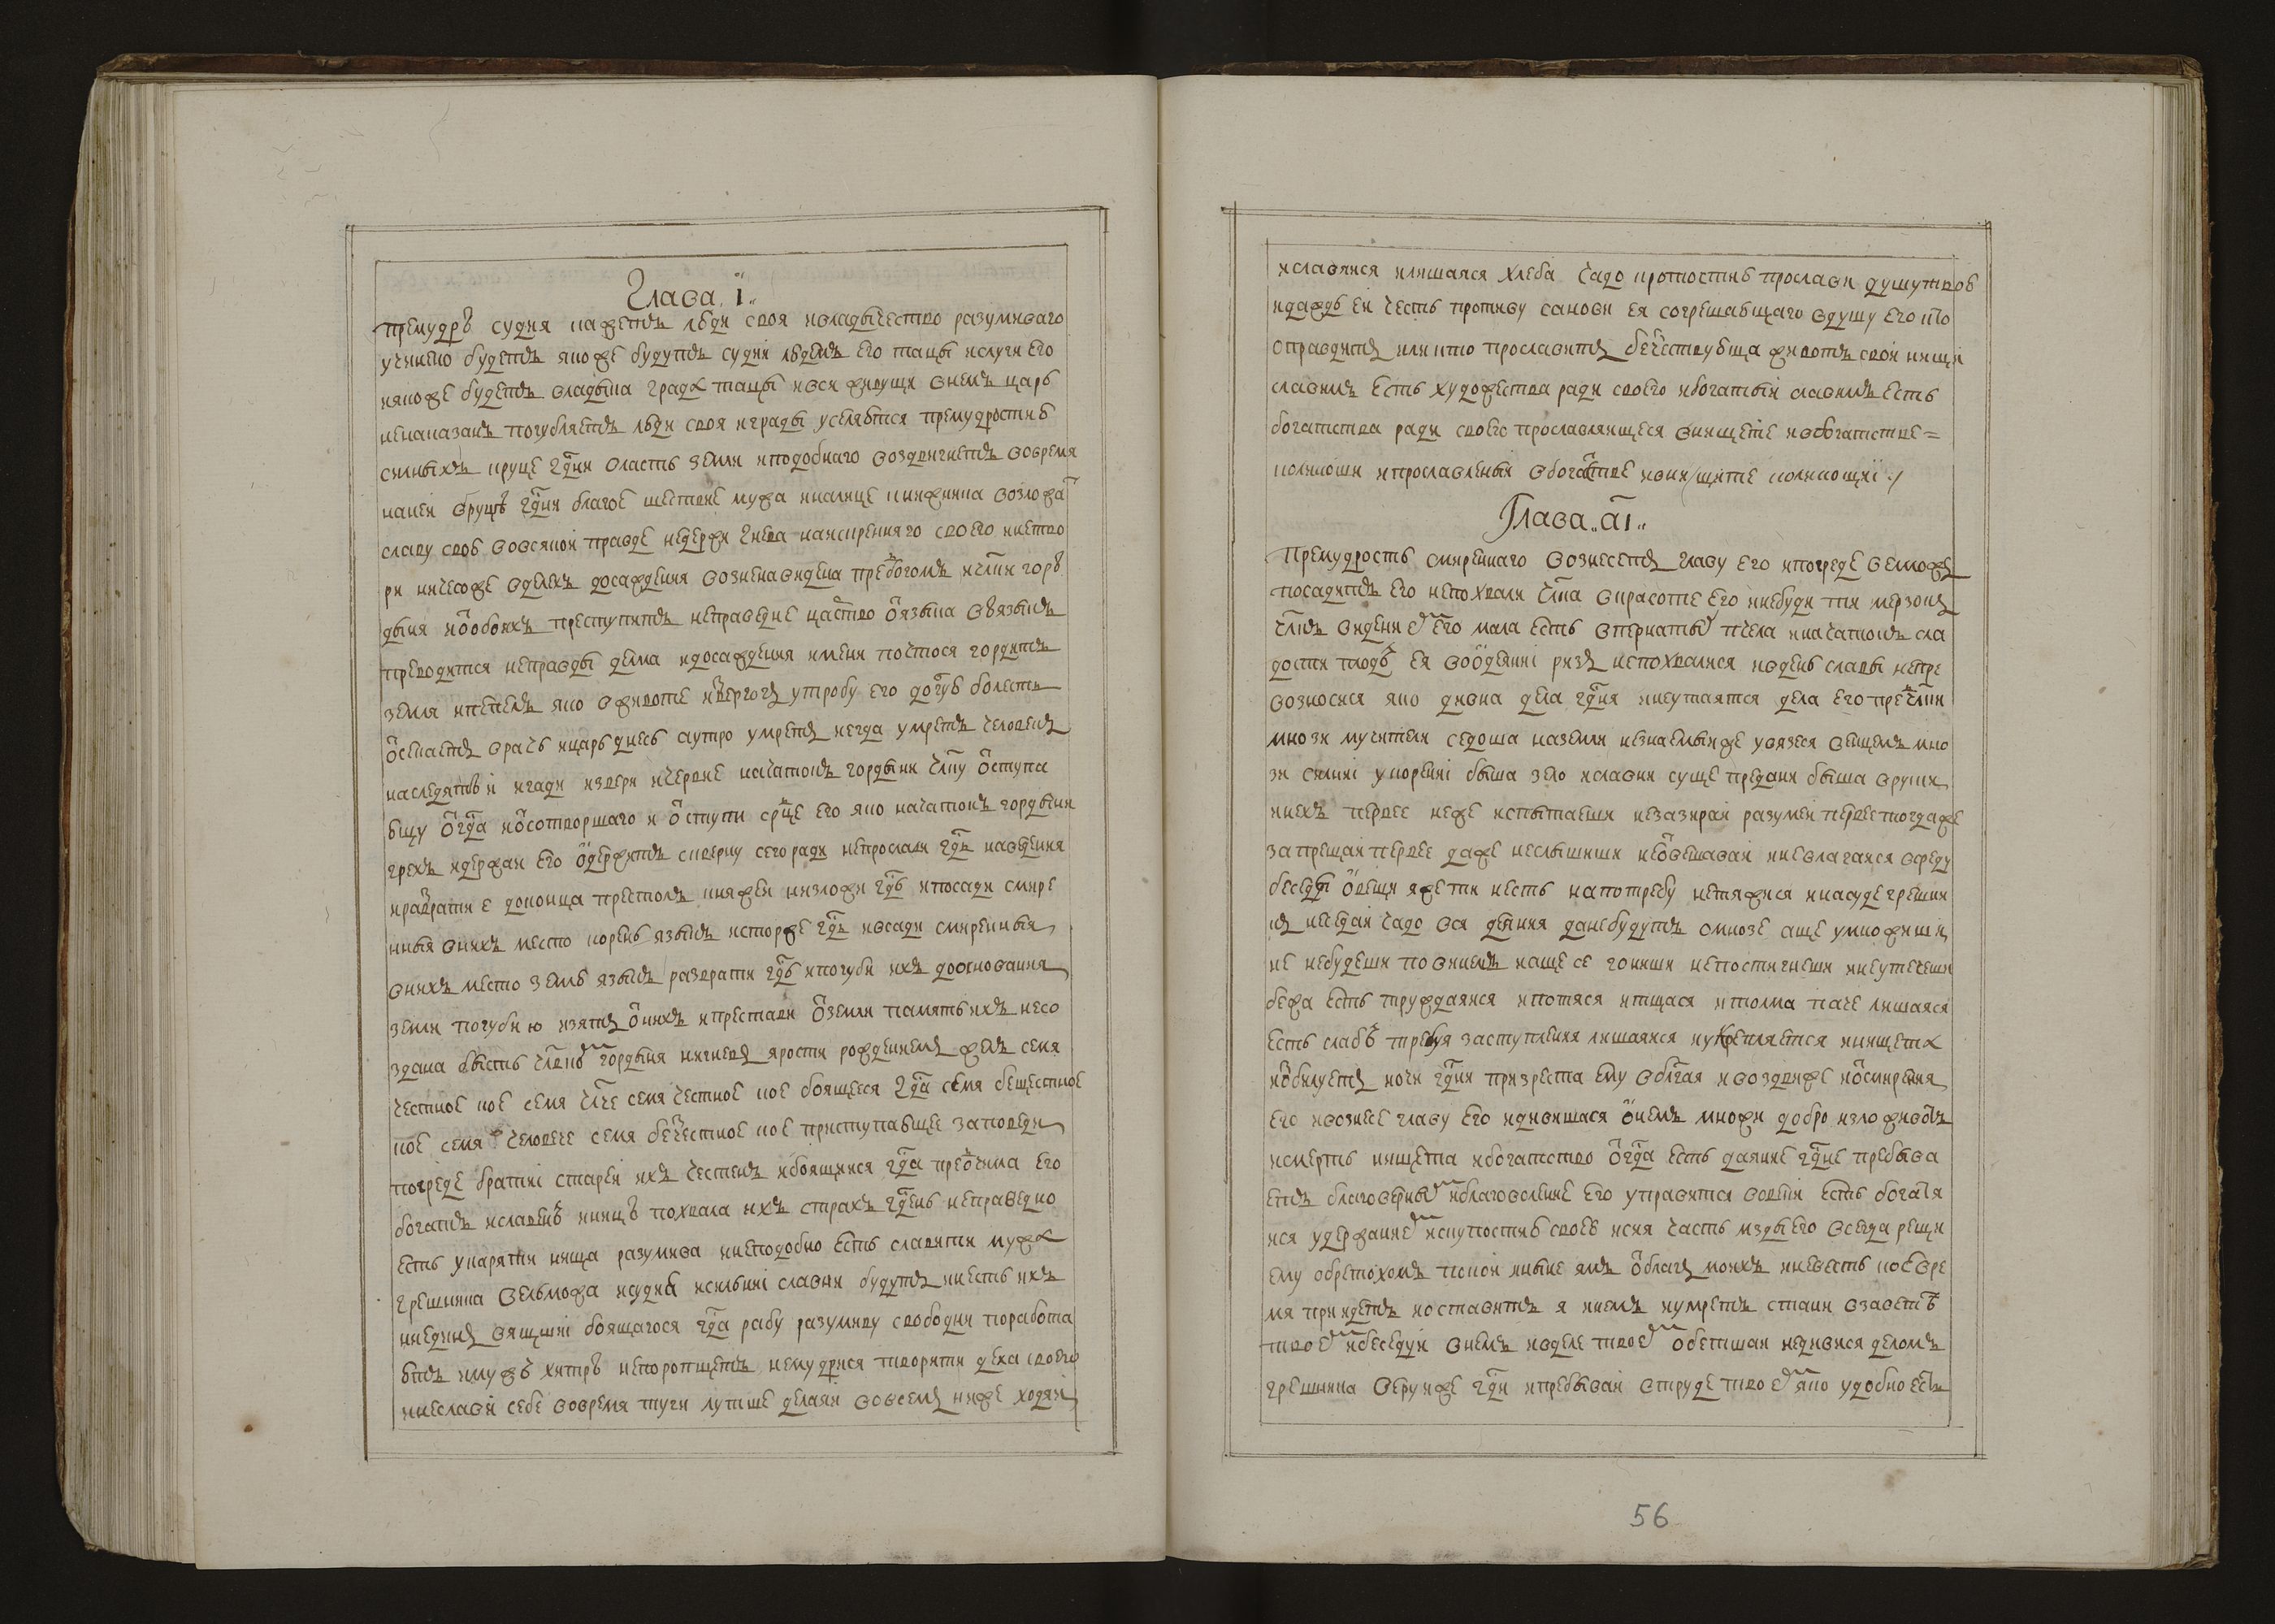 Глава. ї..
Премудръ судия накажетъ люди своя ивладычество разумиваго
учинено будетъ якоже будутъ судии людемъ его тацы ислуги его
иякоже будетъ владыка града тацы ивси живущи внемъ царь
ненаказанъ погубляетъ люди своя играды уселяются премудростию
силныхъ вруце гд͠ни власть земли иподобнаго воздвигнетъ вовремя
наней вруцѣ гд͠ни благое шествие мужа иналице книжника возложа͠
славу свою вовсякой правде недержи гнева наискренняго своего ниетво
ри ничесоже вделехъ досаждения возненавидена пред͠богомъ ичл͠ки горъ
дыня иѿобоихъ преступитъ неправедне царство ѿязыка въязыкъ
преводится неправды дела идосаждения имени почтося гордитъ
земля ипепелъ яко вживоте извергохъ утробу его долгую болесть
ѿсекаетъ врачь ицарь днесь аутро умретъ иегда умретъ человекъ
наследятъ и игади извери ичервие начатокъ гордыни чл͠ку ѿступа
ющу ѿгд͠а иѿсотворшаго и ѿступи срд͠це его яко начатокъ гордыни
грехъ идержай его ѿдержитъ скверну сегоради непрослави гд͠ь наведения
иразврати е доконца престолъ княжей низложи гд͠ь ипосади смире
нныя вних место корень языкъ исторже гд͠ь ивсади смиренныя
вних место землю языкъ разврати гд͠ь ипогуби ихъ дооснования
земли погуби ю изятъ ѿнихъ ипрестави ѿземли память ихъ несо
здана бысть чл͠вкѡ͠ гордыня нигневъ ярости рождениемъ женъ семя
честное кое семя чл͠че семя честное кое боящееся гд͠а семя бещестное
кое семя человече семя безчестное кое приступающее заповеди
посреде братии старей ихъ честенъ ибоящиися гд͠а пред͠очима его
богатъ иславенъ инищъ похвала ихъ страхъ гд͠ень неправедно
есть укаряти нища разумива инеподобно есть славити мужа
грешника велможа исудия исилный славни будутъ инесть ихъ
ниединъ вящший боящагося гд͠а рабу разумиву свободни поработа
ютъ имужъ хитръ непоропщетъ немудрися творити дела своего
инеславй себе вовремя туги лутше делаяй вовсемъ ниже ходяй
иславяися илишаяся хлеба Чадо кротостию прослави душу твою
идаждь ей честь противу санови ея согрешающаго вдушу его кто
оправдитъ иликто прославитъ безчествующа животъ свой нищй
славимъ есть художества ради своего ибогатый славимъ есть
богатства ради своего прославляющеся внищете ивбогатстве =
колмиоши ипрославленый вбогатстве ивни/щите колмкощи :/
Глава..а͠і..
Премудрость смиреннаго вознесетъ главу его ипосреде велможъ
посадитъ его непохвали чл͠ка вкрасоте его ниебуди ти мерзокъ
чл͠къ видение͠ его мала есть впернаты͠ пчела иначатокъ сла
дости плодъ ея воѿдеянии ризъ непохвалися ивдень славы непре
возносися яко дивна дела гд͠ня инеутаятся дела его пред͠чл͠ки
мнози мучители седоша наземли незнаемыйже увязеся венцемъ мно
зи силнии укорении быша зело иславни суще предани быша вруки
инехъ первее неже испытаеши незазирай разумей первее тогдаже
запрещай первее даже неслышиши неѿвещавай иневлагаися вреду
беседы ѿвещи яжети несть напотребу нетяжися инасуде грешни
къ неседай чадо вся деяния данебудутъ омнозе аще умножиши
не небудеши повинемъ иаще се гониши непостигнеши инеутечеши
бежа есть труждаяися ипотяся итщася итолма паче лишаяся
есть слабъ требуя заступления лишаяися иукрепляется инищета
иѿбилуетъ иочи гд͠ни призреста ему вблагая ивоздвиже иѿсмирения
его ивознесе главу его идивишася ѿнемъ мнози добро изло животъ
исмерть нищета ибогатство ѿгд͠а есть даяние гд͠не пребыва
етъ благоверны͠ иблаговоление его управится вовеки есть богатя
ися удержание͠ искупостию своею исия часть мзды его всегда рещи
ему обретохомъ покой иныне ямъ ѿблагъ моихъ иневесть кое вре
мя приидетъ иоставитъ я инемъ иумретъ стани взаветѣ
твое͠ ибеседуй внемъ ивделе твое͠ обетшай недивися деломъ
грешника веруйже гд͠и ипребывай втруде твое͠ яко удобно есть
56